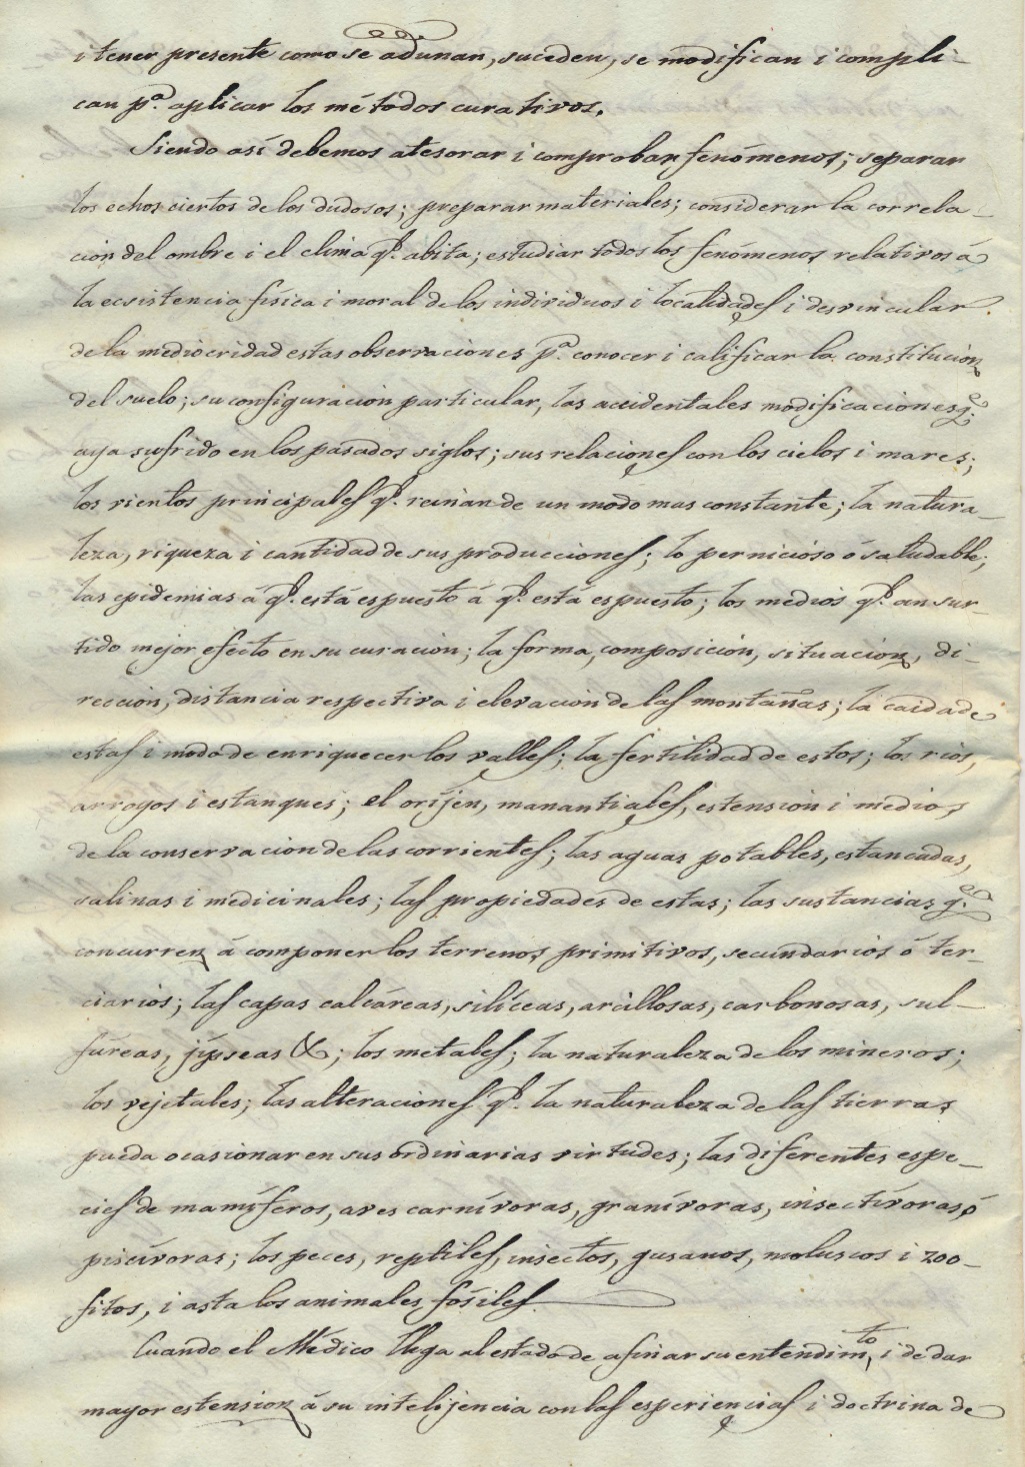 i tener presente como se adunan, suceden, se modifican i compli-
can pª. aplicar los métodos curativos.
Siendo así debemos atesorar i comprobar fenómenos; separar
los echos ciertos de los dudosos; preparar materiales; considerar la correla-
ción del ombre i el clima qᵉ. abita; estudiar todos los fenómenos relativos á
la ecsistencia física i moral de los individuos i localidades i desvincular
de la mediocridad estas observaciones pª. conocer i calificar la constitución
del suelo; su configuracion particular, las accidentales modificaciones qᵉ.
aya sufrido en los pasados siglos; sus relaciones con los cielos i mares;
los vientos principales qᵉ. reinan de un modo mas constante; la natura-
leza, riqueza i cantidad de sus producciones; lo pernicioso ó saludable;
las epidemias á qᵉ. está espuesto á qᵉ. está espuesto; los medios qᵉ. an sur-
tido mejor efecto en su curación; la forma, composición, situacion, di-
rección, distancia respectiva i elevacion de las montañas; la caida de
estas i modo de enriquecer los valles; la fertilidad de estos; los rios,
arroyos i estanques; el oríjen, manantiales, estension i medios
de la conservacion de las corrientes; las aguas potables, estancadas,
salinas i medicinales; las propiedades de estas; las sustancias qᵉ.
concurren á componer los terrenos primitivos, secundarios ó ter-
ciarios; las capas calcáreas, silíceas, arcillosas, carbonosas, sul-
fúreas, jípseas &; los metales; la naturaleza de los mineros;
los vejetales; las alteraciones qᵉ. la naturaleza de las tierras
pueda ocasionar en sus ordinarias virtudes; las diferentes espe-
cies de mamíferos, aves carnívoras, granívoras, insectívoras ó
piscívoras; los peces, reptiles, insectos, gusanos, moluscos i zoo-
fitos, i asta los animales fósiles.
Cuando el Médico llega al estado de afinar su entendimᵗᵒ, i de dar
mayor estension á su intelijencia con las esperiencias i doctrina de